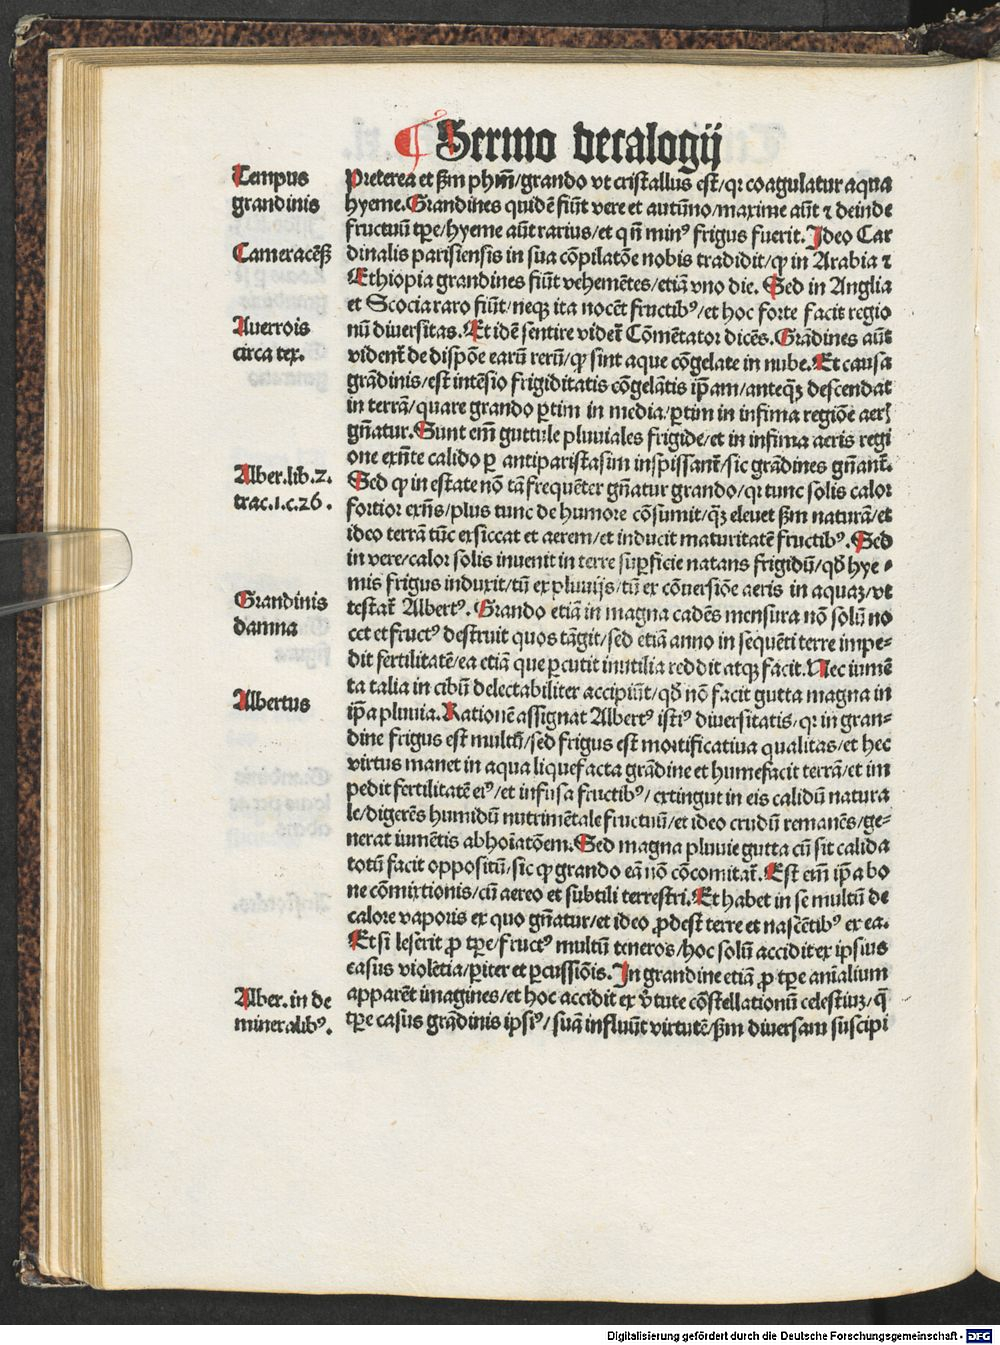 ¶ Sermo decalogij
Tempus
grandinis
Cameracēß
Auerrois
circa tex.
Alber. lib. 2.
trac. 1. c. 26.
Grandinis
damna
Albertus
Alber. in de
mineralibꝰ.
Preterea et ẜm phm̄/grando vt cristallus est/qꝛ coagulatur aqua
hyeme. Grandines quidē fiūt vere et autūno/maxime aūt ⁊ deinde
fructuū tp̄e/hyeme aūt rarius/et qn̄ minꝰ frigus fuerit. Ideo Car
dinalis parisiensis in sua cōpilatōe nobis tradidit/ꝙ in Arabia ⁊
Ethiopia grandines fiūt vehemētes/etiā vno die. Sed in Anglia
et Scocia raro fiūt/neqꝫ ita nocēt fructibꝰ/et hoc forte facit regio
nū diuersitas. Et idē sentire videt̄ Cōmētator dicēs. Grādines aūt
vident̄ de dispōe earū rerū/ꝙ sint aque cōgelate in nube. Et causa
grādinis/est intēsio frigiditatis cōgelātis ip̄am/anteqꝫ̄ descendat
in terrā/quare grando ꝑtim in media/ꝑtim in infima regiōe aerꝭ
gn̄atur. Sunt em̄ guttule pluuiales frigide/et in infima aeris regi
one exn̄te calido ꝑ antiparistasim inspissant̄/sic grādines gn̄ant̄.
Sed ꝙ in estate nō tā frequēter gn̄atur grando/qꝛ tunc solis calor
fortior exn̄s/plus tunc de humore cōsumit/qꝫ̄ eleuet ẜm naturā/et
ideo terrā tūc exsiccat et aerem/et inducit maturitatē fructibꝰ. Sed
in vere/calor solis inuenit in terre suꝑficie natans frigidū/qd̄ hye
mis frigus induxit/tū ex pluuijs/tū ex cōuersiōe aeris in aquaꝫ/vt
testat̄ Albertꝰ. Grando etiā in magna cadēs mensura nō solū no
cet et fructꝰ destruit quos tāgit/sed etiā anno in sequēti terre impe-
dit fertilitatē/ea etiā que ꝑcutit inutilia reddit atqꝫ facit. Nec iumē
ta talia in cibū delectabiliter accipiūt/qd̄ nō facit gutta magna in
ip̄a pluuia. Rationē assignat Albertꝰ istiꝰ diuersitatis/qꝛ in gran-
dine frigus est multū/sed frigus est mortificatiua qualitas/et hec
virtus manet in aqua liquefacta grādine et humefacit terrā/et im
pedit fertilitatē eiꝰ/et infusa fructibꝰ/extingut in eis calidū natura
le/digerēs humidū nutrimētale fructuū/et ideo crudū remanēs/ge-
nerat iumētis abhoīatōem. Sed magna pluuie gutta cū sit calida
totū facit oppositū/sic ꝙ grando eā nō cōcomitat̄. Est em̄ ip̄a bo
ne cōmixtionis/cū aereo et subtili terrestri. Et habet in se multū de
calore vaporis ex quo gn̄atur/et ideo ꝓdest terre et nascētibꝰ ex ea.
Et si leserit ꝓ tp̄e/fructꝰ multū teneros/hoc solū accidit ex ipsius
casus violētia/ꝑiter et ꝑcussiōis. In grandine etiā ꝓ tp̄e aīalium
apparēt imagines/et hoc accidit ex v̄tute cōstellationū celestiuꝫ/q̄
tp̄e casus grādinis ipsiꝰ/suā influūt virtutē/ẜm diuersam suscipi
Digitalisierung gefördert durch die Deutsche Forschungsgemeinschaft - DFG